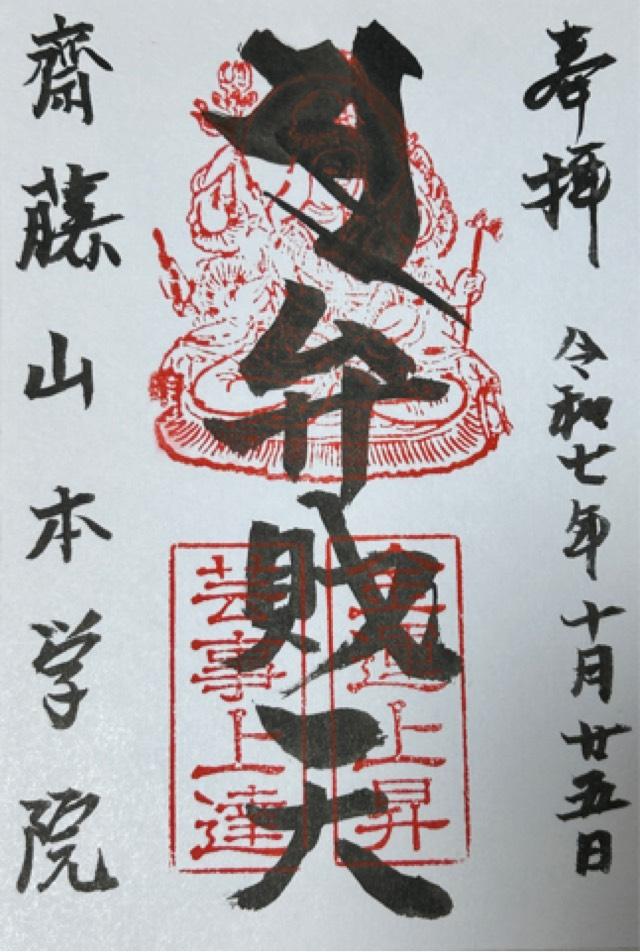 奉拝
令和七年十月廿五日
弁財天
金運上昇
芸事上達
齋藤山本学院